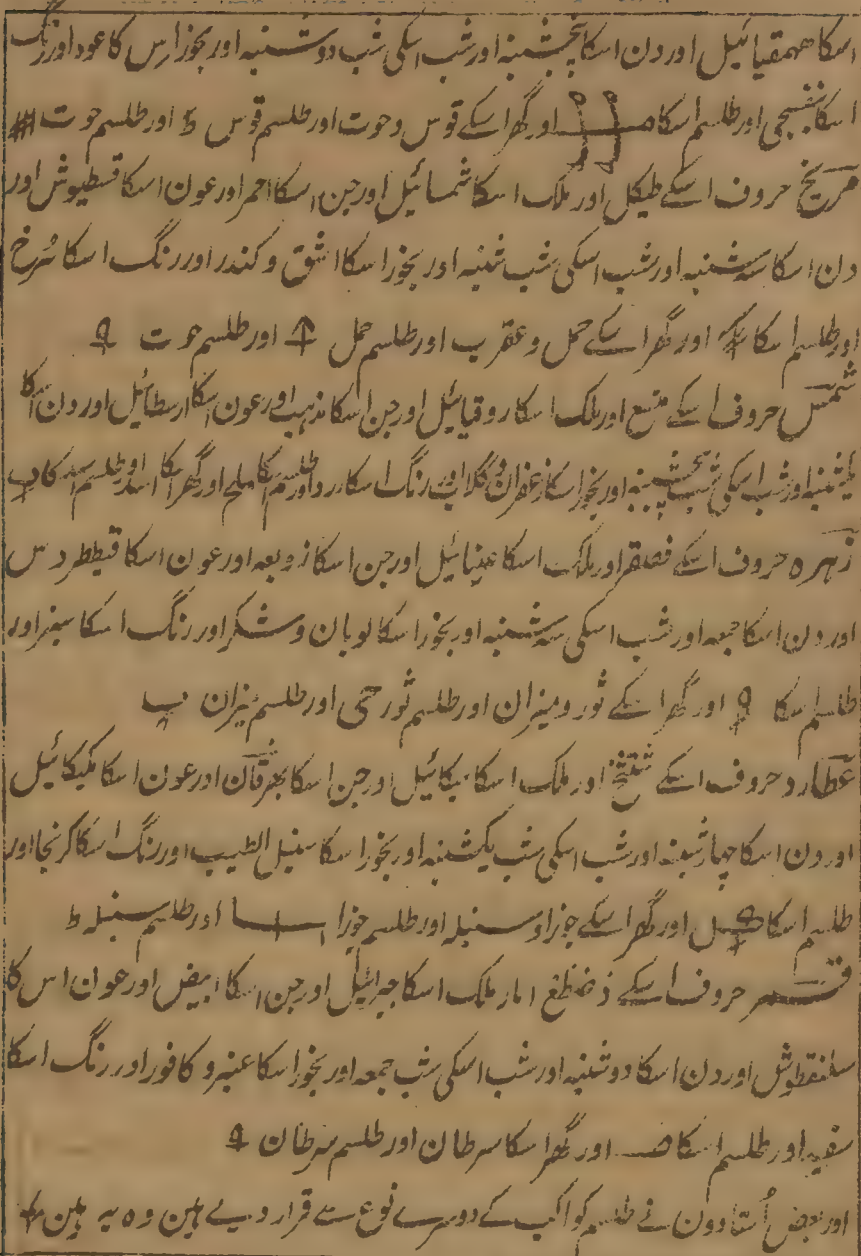 اسکا ھمقیائیل اور دن اسکا پنجشنبہ اور شب اسکی شب دوشنبہ اور بخور اس کا عود اور رنگ
اسکا بنفسجی اور طلسم اسکا اور گھر اسکے قوس وحوت اور طلسم قوس اور طلسم حوت #
مریخ حروف اسکے طیکل اور ملک اسکا شمسائیل اور جن اسکا احمر اور عون اسکا قسطیوش اور
دن اسکا سہ شنبہ اور شب اسکی شب شنبہ اور بخور اسکا اشق و کندر اور رنگ اسکا سُرخ
اور طلسم اسکا اور گھر اسکے حمل و عقرب اور طلسم حمل اور طلسم حوت
شمس حروف اسکے منسع اور ملک اسکا روقیائیل اور جن اسکا مذہب اور عون اسکا ارسطائیل اور دن اسکا
یکشنبہ اور شب اسکی شب پنجشنبہ اور بخور اسکا زعفران و گلاب اور رنگ اسکا زرد اور طلسم اسکا ملح اور گھر اسکا اسد اور طلسم اسد کا
زہرہ حروف اسکے فصقر اور ملک اسکا عینائیل اور جن اسکا زوبعہ اور عون اسکا قیططردس
اور دن اسکا جمعہ اور شب اسکی سہ شنبہ اور بخور اسکا لوبان و شکر اور رنگ اسکا سبز اور
طلسم اسکا اور گھر اسکے ثور و میزان اور طلسم ثور حی اور طلسم میزان
عطارد حروف اسکے شتثخ اور ملک اسکا میکائیل اور جن اسکا بھرقان اور عون اسکا مکیکائیل
اور دن اسکا چہار شنبہ اور شب اسکی شب یکشنبہ اور بخور اسکا سنبل الطیب اور رنگ اسکا کرنجا اور
طلسم اسکا اور گھر اسکے جوزا و سنبلہ اور طلسم جوزا اور طلسم سنبلہ ط
قمر حروف اسکے ذضظغ اور ملک اسکا جبرائیل اور جن اسکا ابیض اور عون اس کا
سلنقطوش اور دن اسکا دوشنبہ اور شب اسکی شب جمعہ اور بخور اسکا عنبر و کافور اور رنگ اسکا
سفید اور طلسم اسکا اور گھر اسکا سرطان اور طلسم سرطان
اور بعض اُستادون نے طلسم کواکب کے دوسرے نوع سے قرار دیے ہین وہ یہ ہین